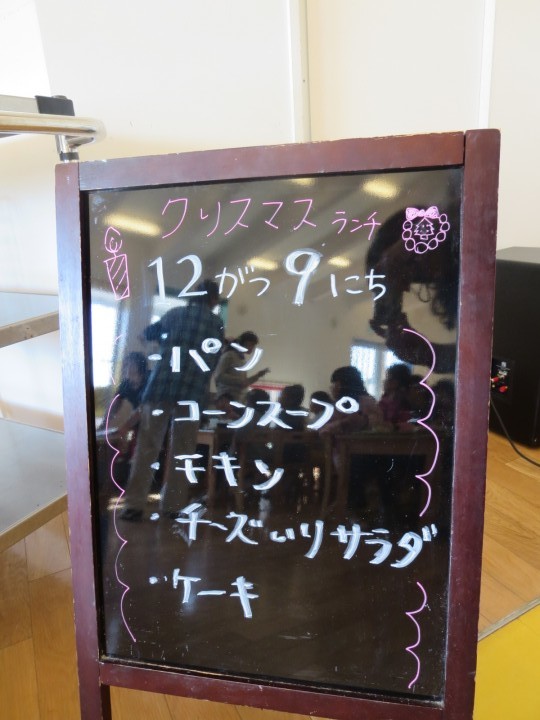 クリスマスランチ
12がつ9にち
・パン
・コーンスープ
・チキン
・チーズいりサラダ
・ケーキ